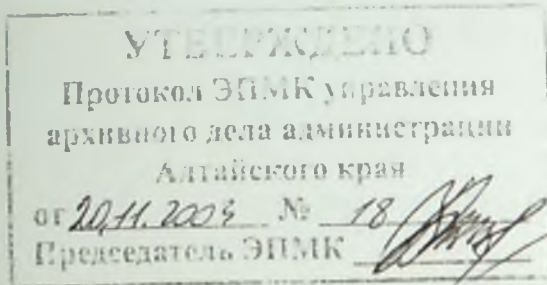 УТВЕРЖДЕНО
Протокол ЭПМК управления
архивного дела администрации
Алтайского края
от 20.11.2003 № 18
Председатель ЭПМК